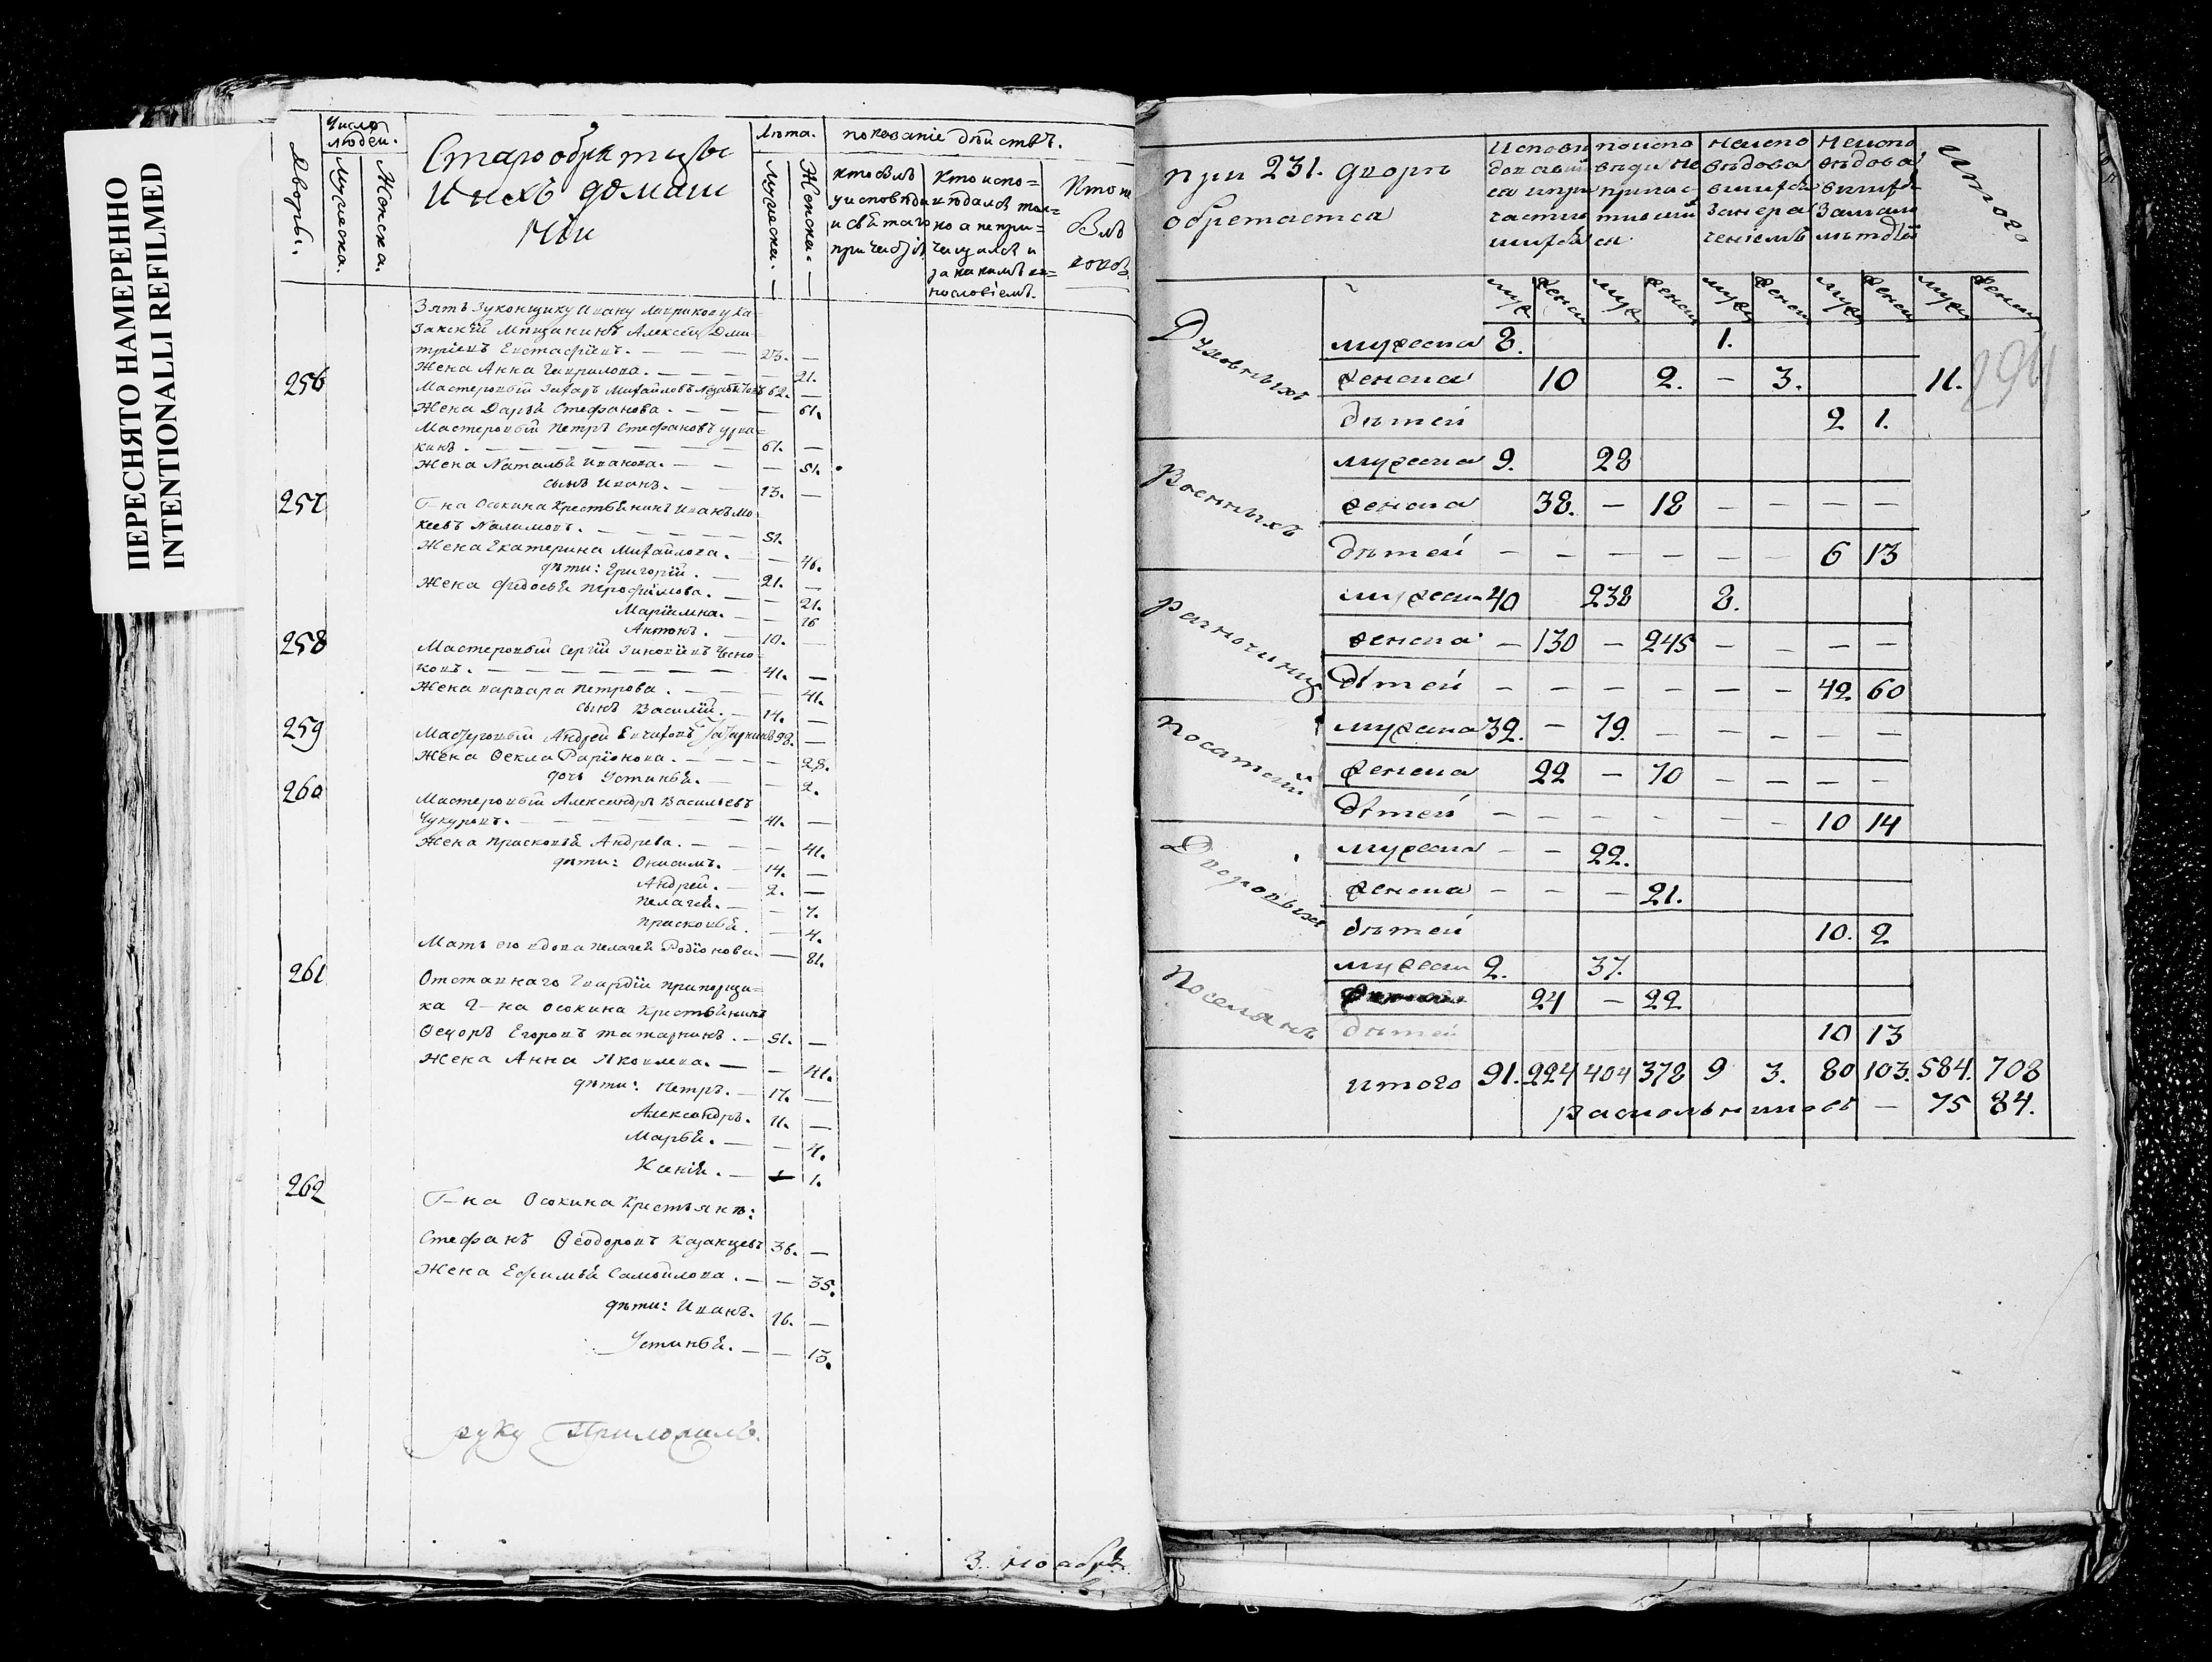 ПЕРЕСНЯТО НАМЕРЕННО
INTENTIONALLI REFILMED
Дворы.
Число людей.
Мужеска.
Женска.
Старообрятцы
и ихъ домаш
нiи
Лѣта.
Мужеска.
Женска.
показанiе дѣиствъ.
кто былъ
у исповѣди
и свѣтаго
причастiя
Кто испо=
вѣдалсѣ тол=
ко а непри=
чащался и
за какимъ ви=
нословiемъ.
Кто не
былъ
Зять Ивану
занскiй мѣщанинъ Алексѣй Дми
трiевъ Евстафiевъ. — — — 23. —
Жена Анна Гаврилова. — — — — 21.
256 Мастеровый Захаръ Михайловъ 62. —
Жена Дарья Стефанова. — — — — 61.
Мастеровый Петръ Стефановъ
кинъ. — — — — — 61. —
Жена Наталья Иванова. — — — 51.
сынъ Иванъ. — — 23. —
257 Г-на Осокина Крестьянинъ Иванъ Мо
кеевъ Налимовъ. — — — — 51.
Жена Екатерина Михайлова. — — 46.
дѣти: Григорiй. — 21. —
Жена Федосья Трофимова. — — 21.
Марiамна. — — 16
Антонъ. — 10. —
258 Мастеровый Сергiй Зиновiевъ Чесно
ковъ. — — — — — — 41. —
Жена варвара Петрова. — — — — 41.
сынъ Василiй. — 14. —
259 Мастеровый Андрей 28. —
Жена Фекла Рарiонова. — — — — 28.
дочь Устинья. — — 2.
260 Мастеровый Александръ Васильевъ
Чукуровъ. — — — — — 41. —
Жена Прасковья Андрева. — — — 41.
дѣти: Онисимъ. — 14. —
Андрей. — 2. —
Пелагея. — — 7.
Прасковья. — 4.
Мать его вдова Пелагея Родiонова. — 81.
261 Отставнаго Гвардiи прапорщи=
ка Г-на Осокина Крестьянинъ
Феодоръ Егоровъ Татаркинъ. — 51. —
Жена Анна Яковлева. — — 41.
дѣти: Петръ. — 17. —
Александръ. 11. —
Марья. — — 4.
Ксенiя. — — 1.
262 Г-на Осокина Крестьяне:
Стефанъ Феодоровъ Казанцевъ 36. —
Жена Ефимья Самойлова. — — 35.
дѣти: Иванъ. 16. —
Устинья. — — 13.
руку приложилъ.
3. ноября
при 231. дворѣ
обретается
Исповѣ
давши
ся и при
частив
шихся
поиспо
вѣди не
причас
тивший
ся
неиспо
вѣдова
вшихся
за нера
ченiемъ
неиспо
вѣдова
вшихся
за мало
лѣтствѣ
Итого
муж женск муж женск муж женск муж женск муж женск
Духовныхъ
мужеска 8. 1.
женска 10 2. — 3. 11.
дѣтей 2 1.
Военныхъ
мужеска 9. 28
женска 38. — 18 — — — —
дѣтей — — — — — — 6 13
Разночинцъ
мужеска 40 238 8.
женска — 130 — 245 — — — —
дѣтей — — — — — — 42 60
посатскiй
мужеска 32. — 79. — — — — —
женска 22 — 70 — — — —
дѣтей — — — — — — 10 14
Дворовыхъ
мужеска — — 22.
женска — — — 21.
дѣтей 10. 2
Поселянъ
мужеска 2. 37.
24 — 22
дѣтей 10 13
итого 91. 224 404 378 9 3. 80 103. 584. 708
раскольниковъ — 75 84.